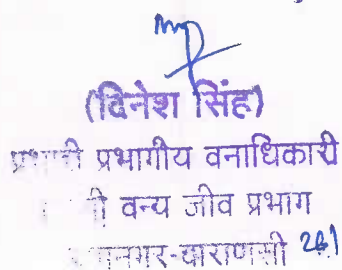 (दिनेश सिंह)
प्रभारी प्रभागीय वनाधिकारी
वन्य जीव प्रभाग
रामनगर-वाराणसी 261